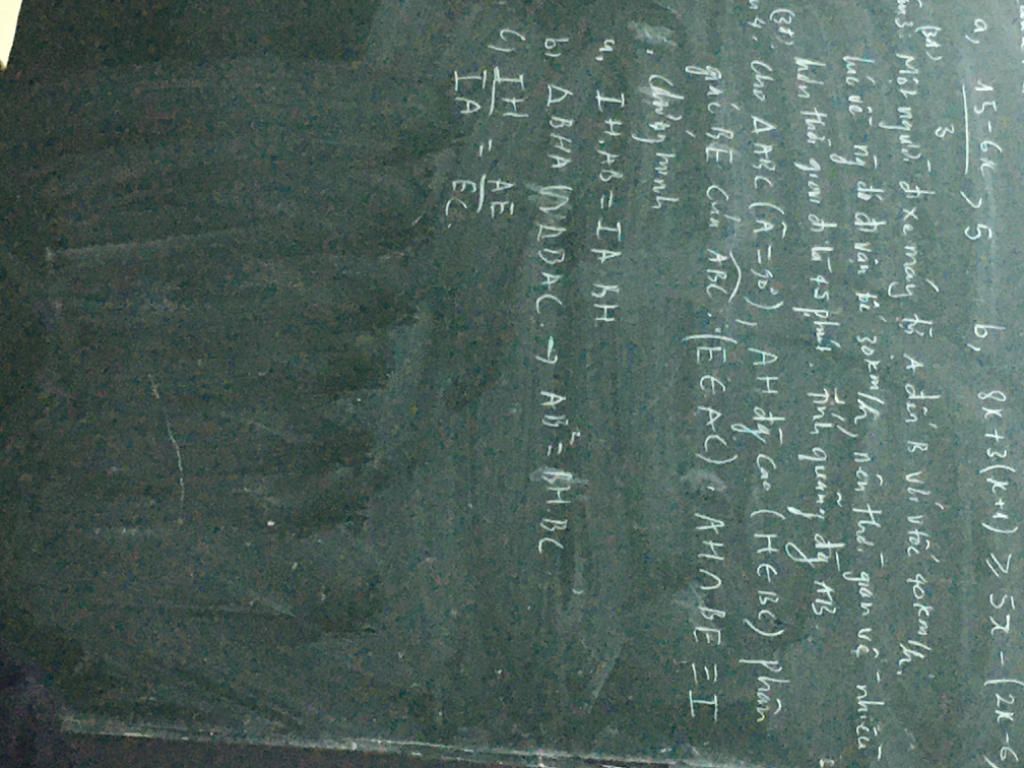 a, 15-6x / 3 > 5 b, 8x+3(x+1) ≥ 5x - (2x-6
Một người đi xe máy từ A đến B với vtốc 40km/h,
lúc về ng đó đi vận tốc 30km/h, nên thời gian về nhiều
hơn thời gian đi là 45 phút. Tính quãng đg AB
4. Cho ΔABC (Â = 90°), AH đg cao (H∈BC) phân
giác BE của ABC. (E∈AC) AH∩BE ≡ I
Chứng minh
a, IH.AB = IA.BH
b, ΔBHA ∽ ΔBAC → AB² = BH.BC
c, IH/IA = AE/EC.